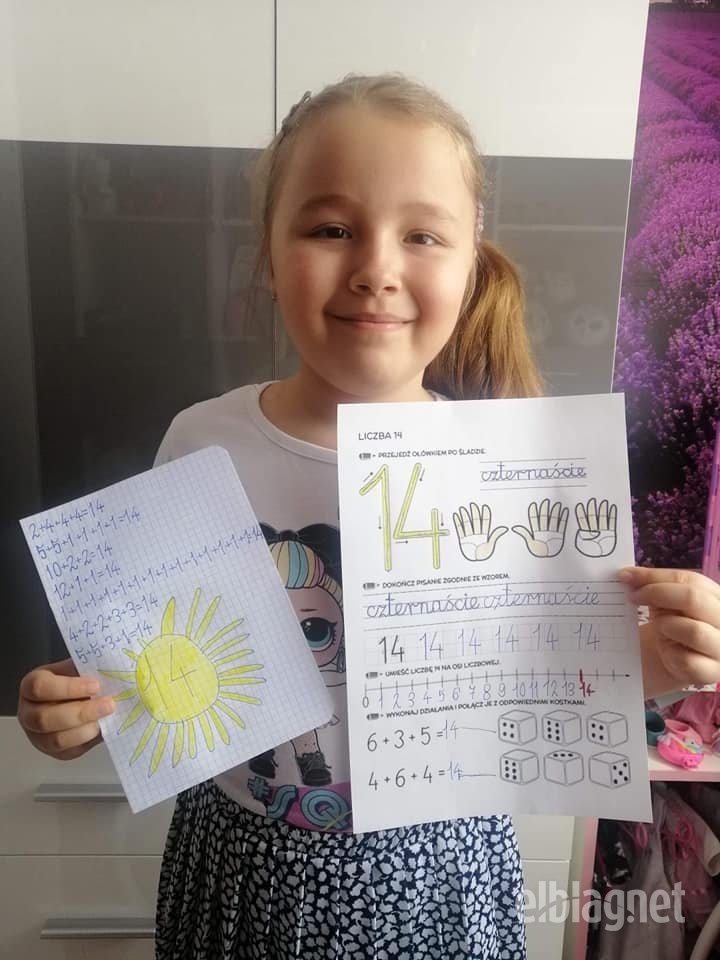 2+4+4+4=14
5+5+1+1+1+1=14
10+2+2=14
12+1+1=14
1+1+1+1+1+1+1+1+1+1+1+1+1+1=14
4+2+2+3+3=14
5+5+3+1=14
14
LICZBA 14
PRZEJEDŹ OŁÓWKIEM PO ŚLADZIE.
14 czternaście
DOKOŃCZ PISANIE ZGODNIE ZE WZOREM.
czternaście czternaście
14 14 14 14 14 14
UMIEŚĆ LICZBĘ 14 NA OSI LICZBOWEJ.
0 1 2 3 4 5 6 7 8 9 10 11 12 13 14
WYKONAJ DZIAŁANIA I POŁĄCZ JE Z ODPOWIEDNIMI KOSTKAMI.
6 + 3 + 5 = 14
4 + 6 + 4 = 14
elbląg.net